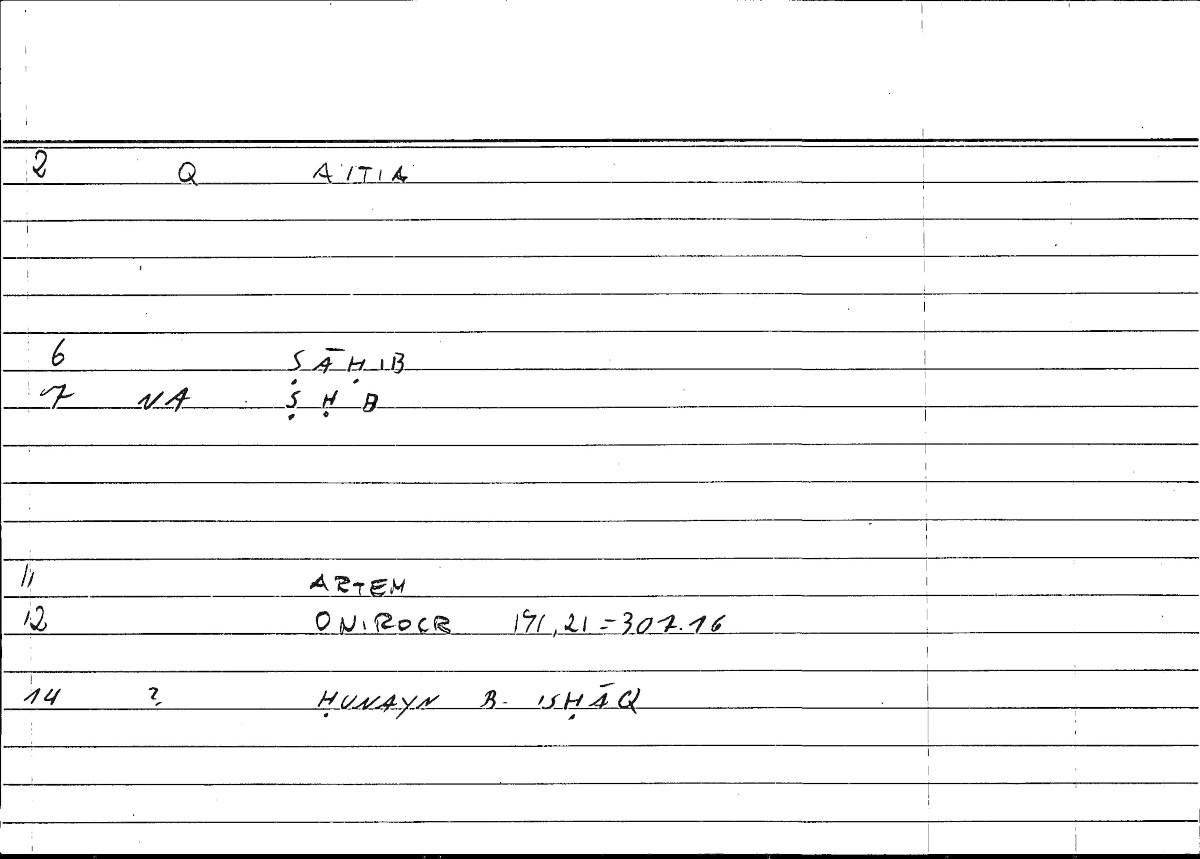 2 Q A'ITIA
6 ṢĀḤIB
7 NA Ṣ Ḥ B
11 ARTEM
12 ONIROCR 191,21=307.16
14 ? ḤUNAYN B. ISḤĀQ